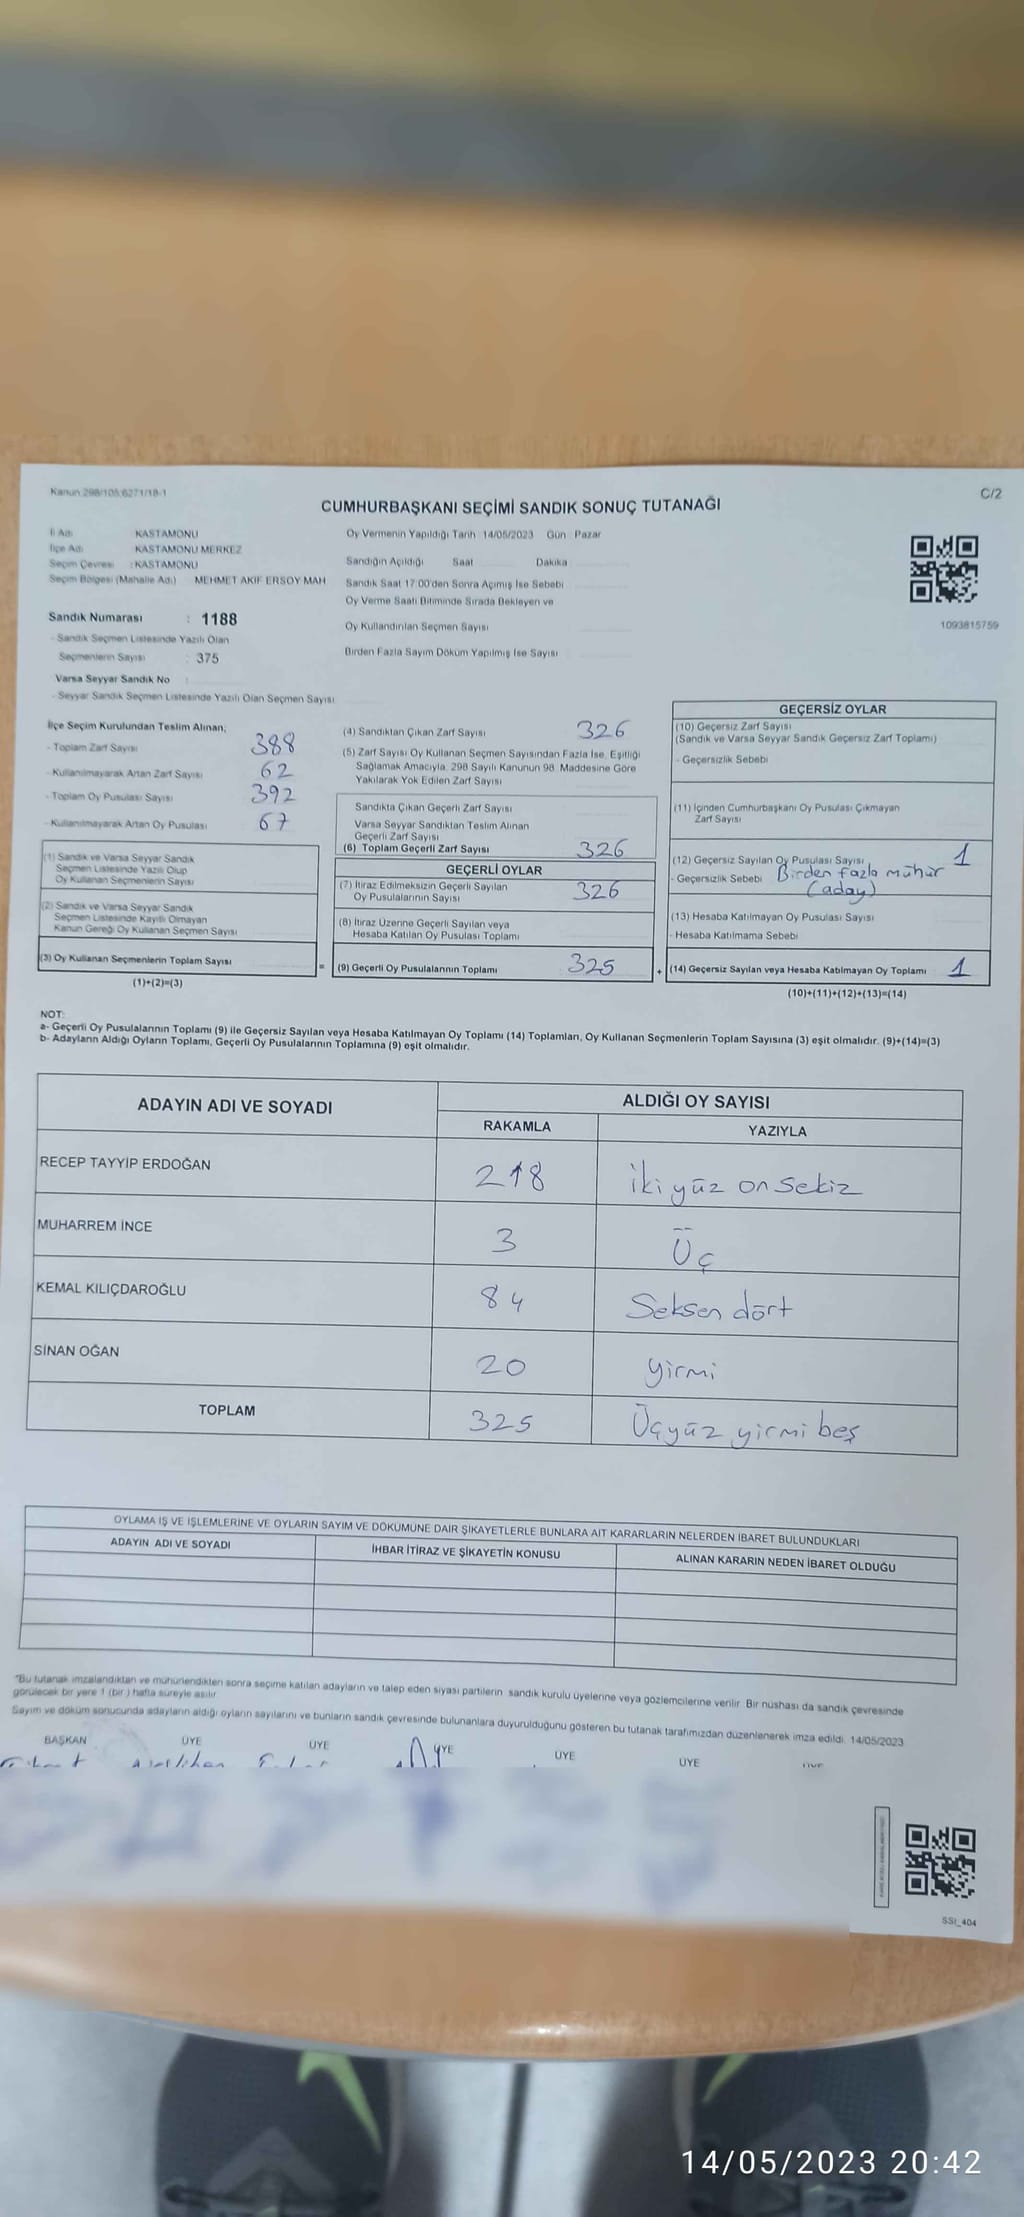 Kanun 298/105,6271/18-1
C/2
CUMHURBAŞKANI SEÇİMİ SANDIK SONUÇ TUTANAĞI
İl Adı : KASTAMONU
İlçe Adı : KASTAMONU MERKEZ
Seçim Çevresi : KASTAMONU
Seçim Bölgesi (Mahalle Adı) MEHMET AKİF ERSOY MAH
Sandık Numarası : 1188
- Sandık Seçmen Listesinde Yazılı Olan
Seçmenlerin Sayısı : 375
Varsa Seyyar Sandık No :
- Seyyar Sandık Seçmen Listesinde Yazılı Olan Seçmen Sayısı
Oy Vermenin Yapıldığı Tarih 14/05/2023 Gün : Pazar
Sandığın Açıldığı Saat Dakika
Sandık Saat 17:00'den Sonra Açılmış İse Sebebi
Oy Verme Saati Bitiminde Sırada Bekleyen ve
Oy Kullandırılan Seçmen Sayısı
Birden Fazla Sayım Döküm Yapılmış İse Sayısı
1093815759
İlçe Seçim Kurulundan Teslim Alınan;
- Toplam Zarf Sayısı 388
- Kullanılmayarak Artan Zarf Sayısı 62
- Toplam Oy Pusulası Sayısı 392
- Kullanılmayarak Artan Oy Pusulası 67
(1) Sandık ve Varsa Seyyar Sandık
Seçmen Listesinde Yazılı Olup
Oy Kullanan Seçmenlerin Sayısı
(2) Sandık ve Varsa Seyyar Sandık
Seçmen Listesinde Kayıtlı Olmayan
Kanun Gereği Oy Kullanan Seçmen Sayısı
(3) Oy Kullanan Seçmenlerin Toplam Sayısı =
(1)+(2)=(3)
(4) Sandıktan Çıkan Zarf Sayısı 326
(5) Zarf Sayısı Oy Kullanan Seçmen Sayısından Fazla İse, Eşitliği
Sağlamak Amacıyla, 298 Sayılı Kanunun 98. Maddesine Göre
Yakılarak Yok Edilen Zarf Sayısı
Sandıkta Çıkan Geçerli Zarf Sayısı
Varsa Seyyar Sandıktan Teslim Alınan
Geçerli Zarf Sayısı
(6) Toplam Geçerli Zarf Sayısı 326
GEÇERLİ OYLAR
(7) İtiraz Edilmeksizin Geçerli Sayılan
Oy Pusulalarının Sayısı 326
(8) İtiraz Üzerine Geçerli Sayılan veya
Hesaba Katılan Oy Pusulası Toplamı
(9) Geçerli Oy Pusulalarının Toplamı 325 +
GEÇERSİZ OYLAR
(10) Geçersiz Zarf Sayısı
(Sandık ve Varsa Seyyar Sandık Geçersiz Zarf Toplamı)
- Geçersizlik Sebebi
(11) İçinden Cumhurbaşkanı Oy Pusulası Çıkmayan
Zarf Sayısı
(12) Geçersiz Sayılan Oy Pusulası Sayısı 1
- Geçersizlik Sebebi Birden fazla mühür
(aday)
(13) Hesaba Katılmayan Oy Pusulası Sayısı
- Hesaba Katılmama Sebebi
(14) Geçersiz Sayılan veya Hesaba Katılmayan Oy Toplamı 1
(10)+(11)+(12)+(13)=(14)
NOT:
a- Geçerli Oy Pusulalarının Toplamı (9) ile Geçersiz Sayılan veya Hesaba Katılmayan Oy Toplamı (14) Toplamları, Oy Kullanan Seçmenlerin Toplam Sayısına (3) eşit olmalıdır. (9)+(14)=(3)
b- Adayların Aldığı Oyların Toplamı, Geçerli Oy Pusulalarının Toplamına (9) eşit olmalıdır.
ADAYIN ADI VE SOYADI
ALDIĞI OY SAYISI
RAKAMLA YAZIYLA
RECEP TAYYİP ERDOĞAN 218 iki yüz on sekiz
MUHARREM İNCE 3 Üç
KEMAL KILIÇDAROĞLU 84 Seksen dört
SİNAN OĞAN 20 yirmi
TOPLAM 325 Üçyüz yirmi beş
OYLAMA İŞ VE İŞLEMLERİNE VE OYLARIN SAYIM VE DÖKÜMÜNE DAİR ŞİKAYETLERLE BUNLARA AİT KARARLARIN NELERDEN İBARET BULUNDUKLARI
ADAYIN ADI VE SOYADI İHBAR İTİRAZ VE ŞİKAYETİN KONUSU ALINAN KARARIN NEDEN İBARET OLDUĞU
"Bu tutanak imzalandıktan ve mühürlendikten sonra seçime katılan adayların ve talep eden siyasi partilerin sandık kurulu üyelerine veya gözlemcilerine verilir. Bir nüshası da sandık çevresinde
görülecek bir yere 1 (bir) hafta süreyle asılır.
Sayım ve döküm sonucunda adayların aldığı oyların sayılarını ve bunların sandık çevresinde bulunanlara duyurulduğunu gösteren bu tutanak tarafımızdan düzenlenerek imza edildi. 14/05/2023
BAŞKAN ÜYE ÜYE ÜYE ÜYE ÜYE ÜYE
SSI_404
14/05/2023 20:42